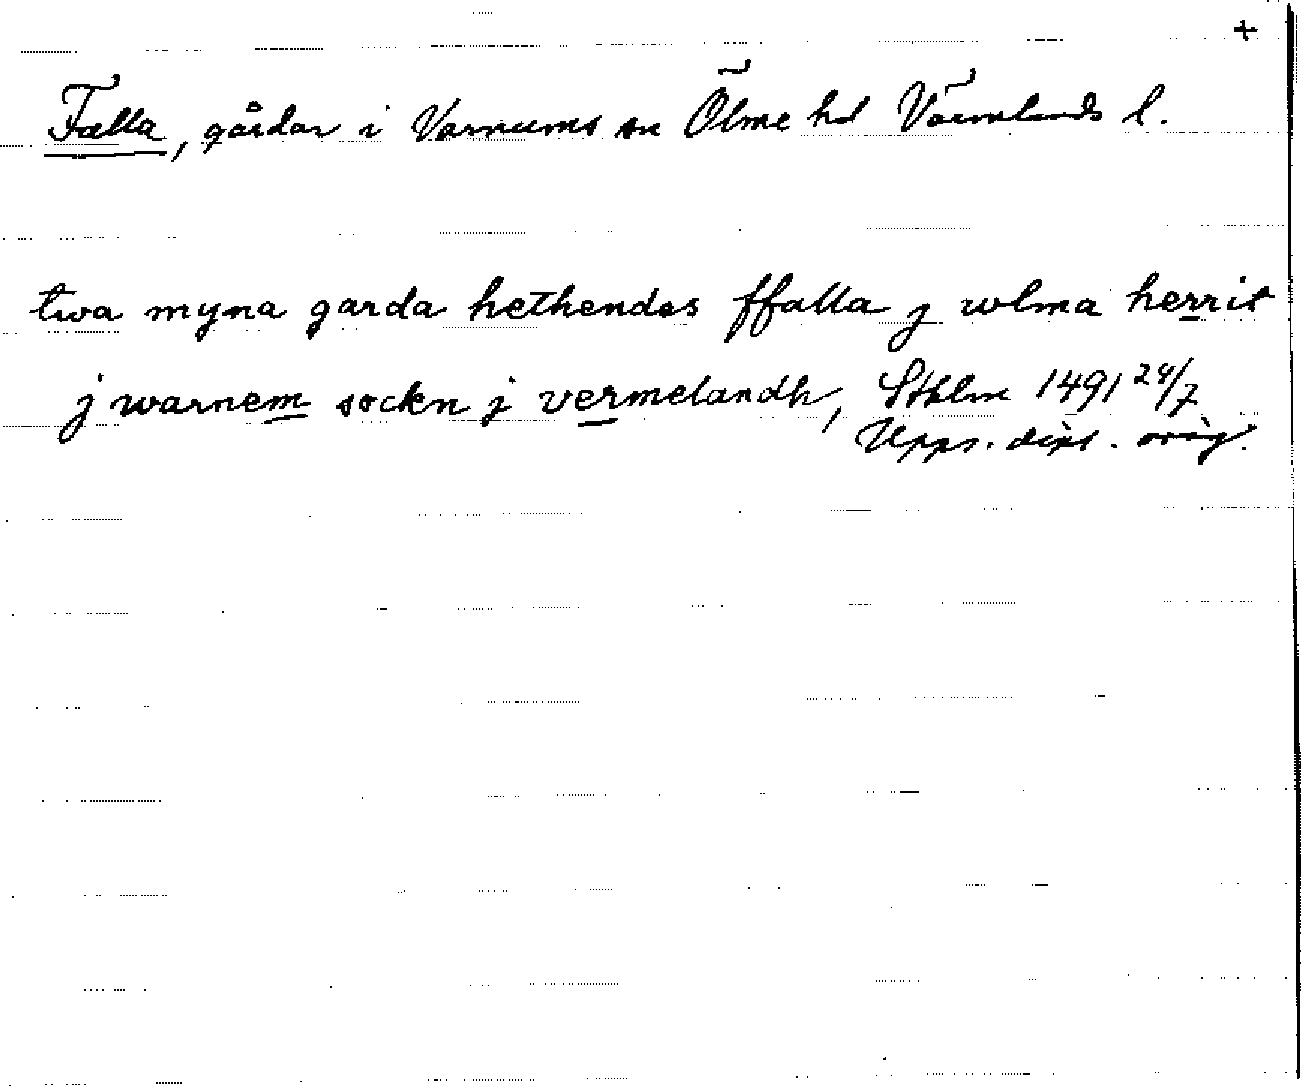 +
Falla, gårdar i Varnums sn Ölme hd Värmlands l.
twa myna garda hethendes ffalla j wlma herrit
j warnem sockn j vermelandh, Sthlm 1491 24/7
Upps. dipl. orig.